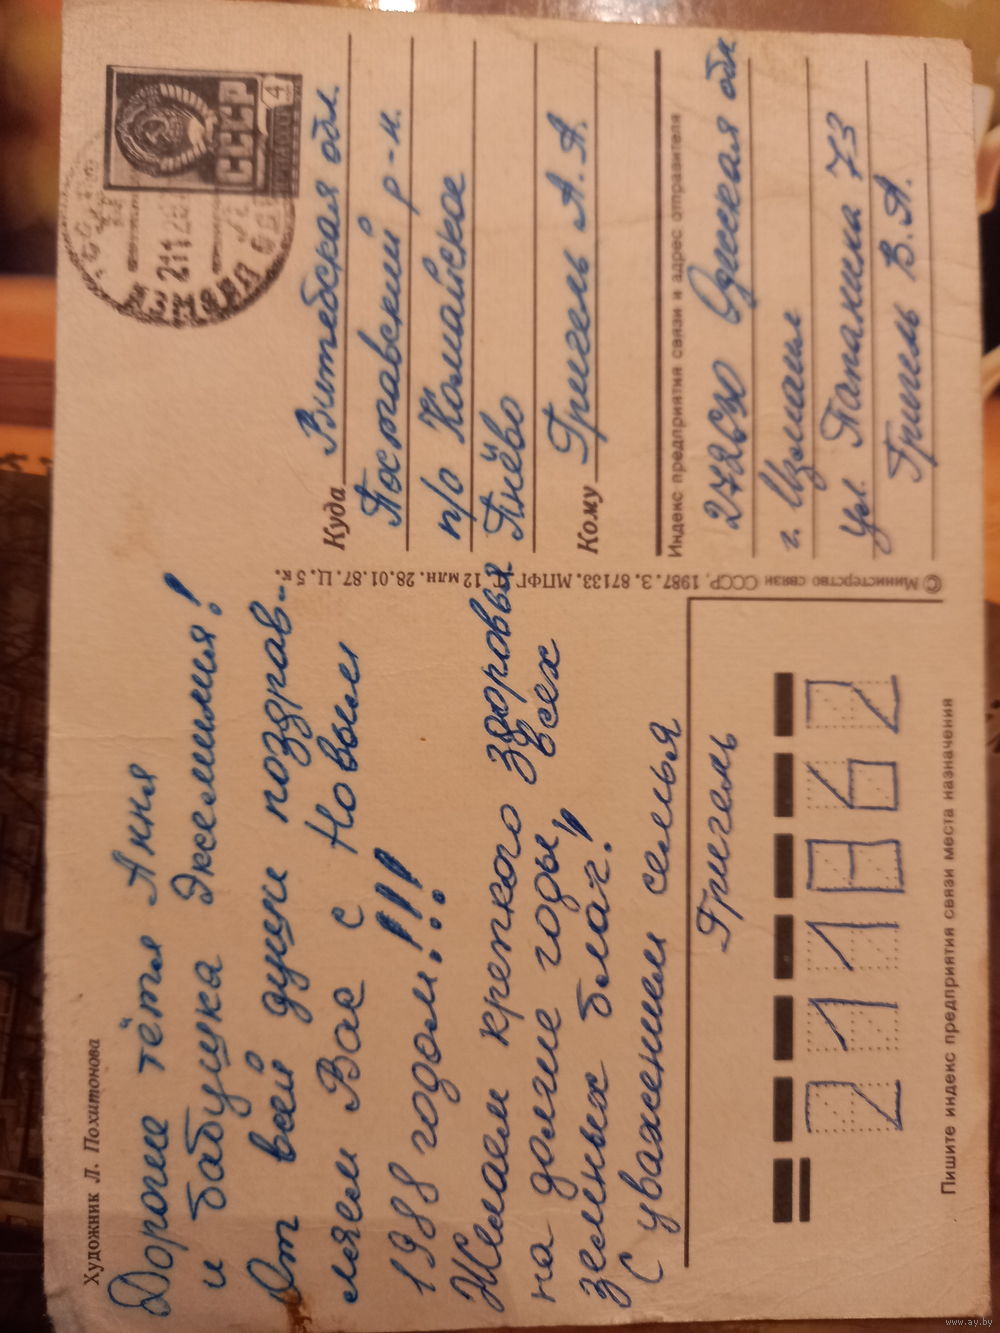 Художник Л. Похитонова
Дорогие тётя Ання
и бабушка Эксемимия!
От всей души поздрав-
ляем Вас с Новым
1988 годом!!!
Желаем крепкого здоровья
на долгие годы, всех
земных благ!
С уважением семья
Григель
211862
Пишите индекс предприятия связи места назначения
© Министерство связи СССР, 1987. З. 87133. МПФГ. 12 млн. 28.01.87. Ц. 5 к.
СССР
4
ИЗМАИЛ
2111
Куда Витебская обл.
Поставский р-н.
п/о Комайское
Пнёво
Кому Григель А. А.
Индекс предприятия связи и адрес отправителя
272630 Одесская обл
г. Измаил
ул. Папанина 73
Григель В. А.
www.ay.by